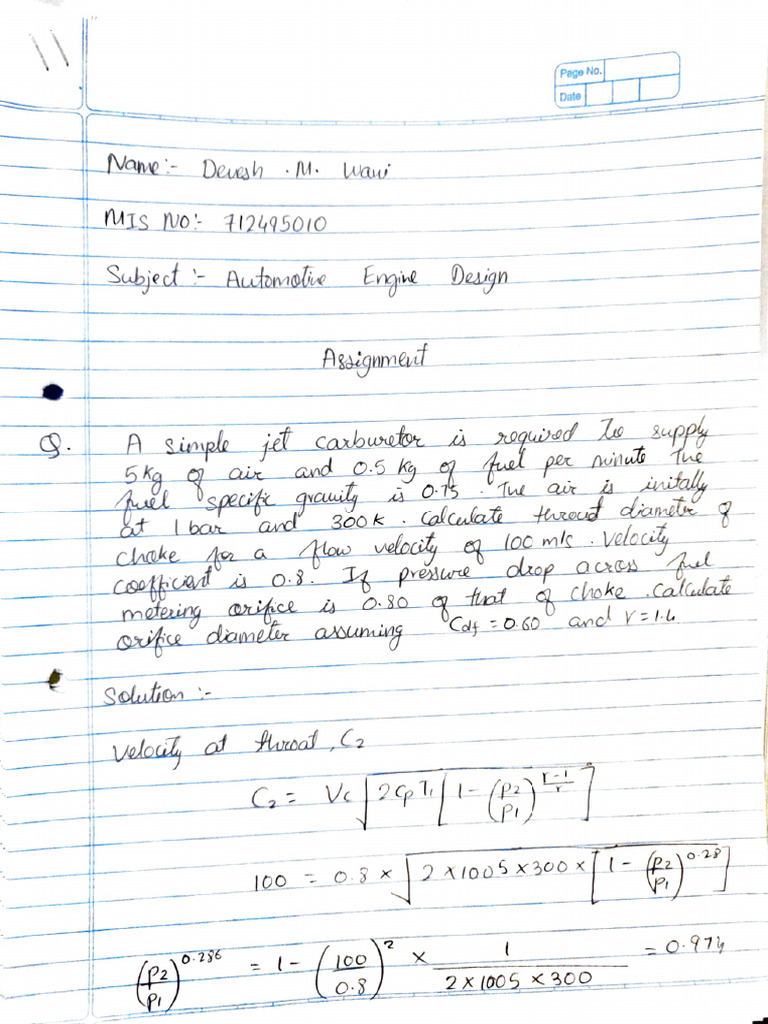 Page No.
Date
Name:- Devesh .M. Wani
MIS NO:- 712495010
Subject :- Automotive Engine Design
Assignment
Q. A simple jet carburetor is required to supply
5kg of air and 0.5 kg of fuel per minute The
fuel specific gravity is 0.75. The air is initally
at 1 bar and 300K. Calculate throat diameter of
choke for a flow velocity of 100 m/s. Velocity
coefficient is 0.8. If pressure drop across fuel
metering orifice is 0.80 of that of choke. Calculate
orifice diameter assuming Cdf = 0.60 and r = 1.4
Solution :-
Velocity at throat, C2
C2 = Vc √2CpT1[1-(P2/P1)^(r-1/r)]
100 = 0.8 × √2×1005×300×[1-(P2/P1)^0.28]
(P2/P1)^0.286 = 1-(100/0.8)^2 × 1/(2×1005×300) = 0.974